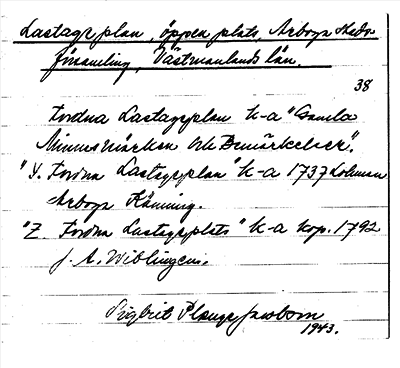 Lastageplan, öppen plats, Arboga stads-
församling, Västmanlands län.
38
Fordna Lastageplan k-a "Gamla
Minnesmärken och Bemärkelser".
"Y. Forna Lastageplan" k-a 1737 Lohman
Arboga Känning.
"Z Forna Lastageplats" k-a kop. 1792
J. A. Wiblingen.
Sigbrit Plænge Jacobson
1943.